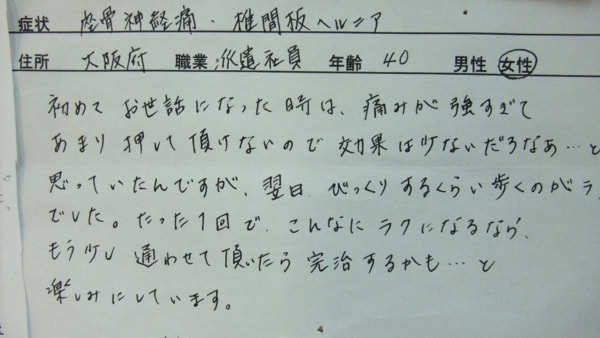 症状 座骨神経痛・椎間板ヘルニア
住所 大阪府 職業 派遣社員 年齢 40 男性 女性
初めて お世話になった時は、痛みが強すぎて
あまり押して頂けないので効果は少ないだろなあ…と
思っていたんですが、翌日、びっくりするくらい歩くのがラ
でした。たった1回で、こんなにラクになるなら、
もう少し通わせて頂いたら完治するかも…と
楽しみにしています。